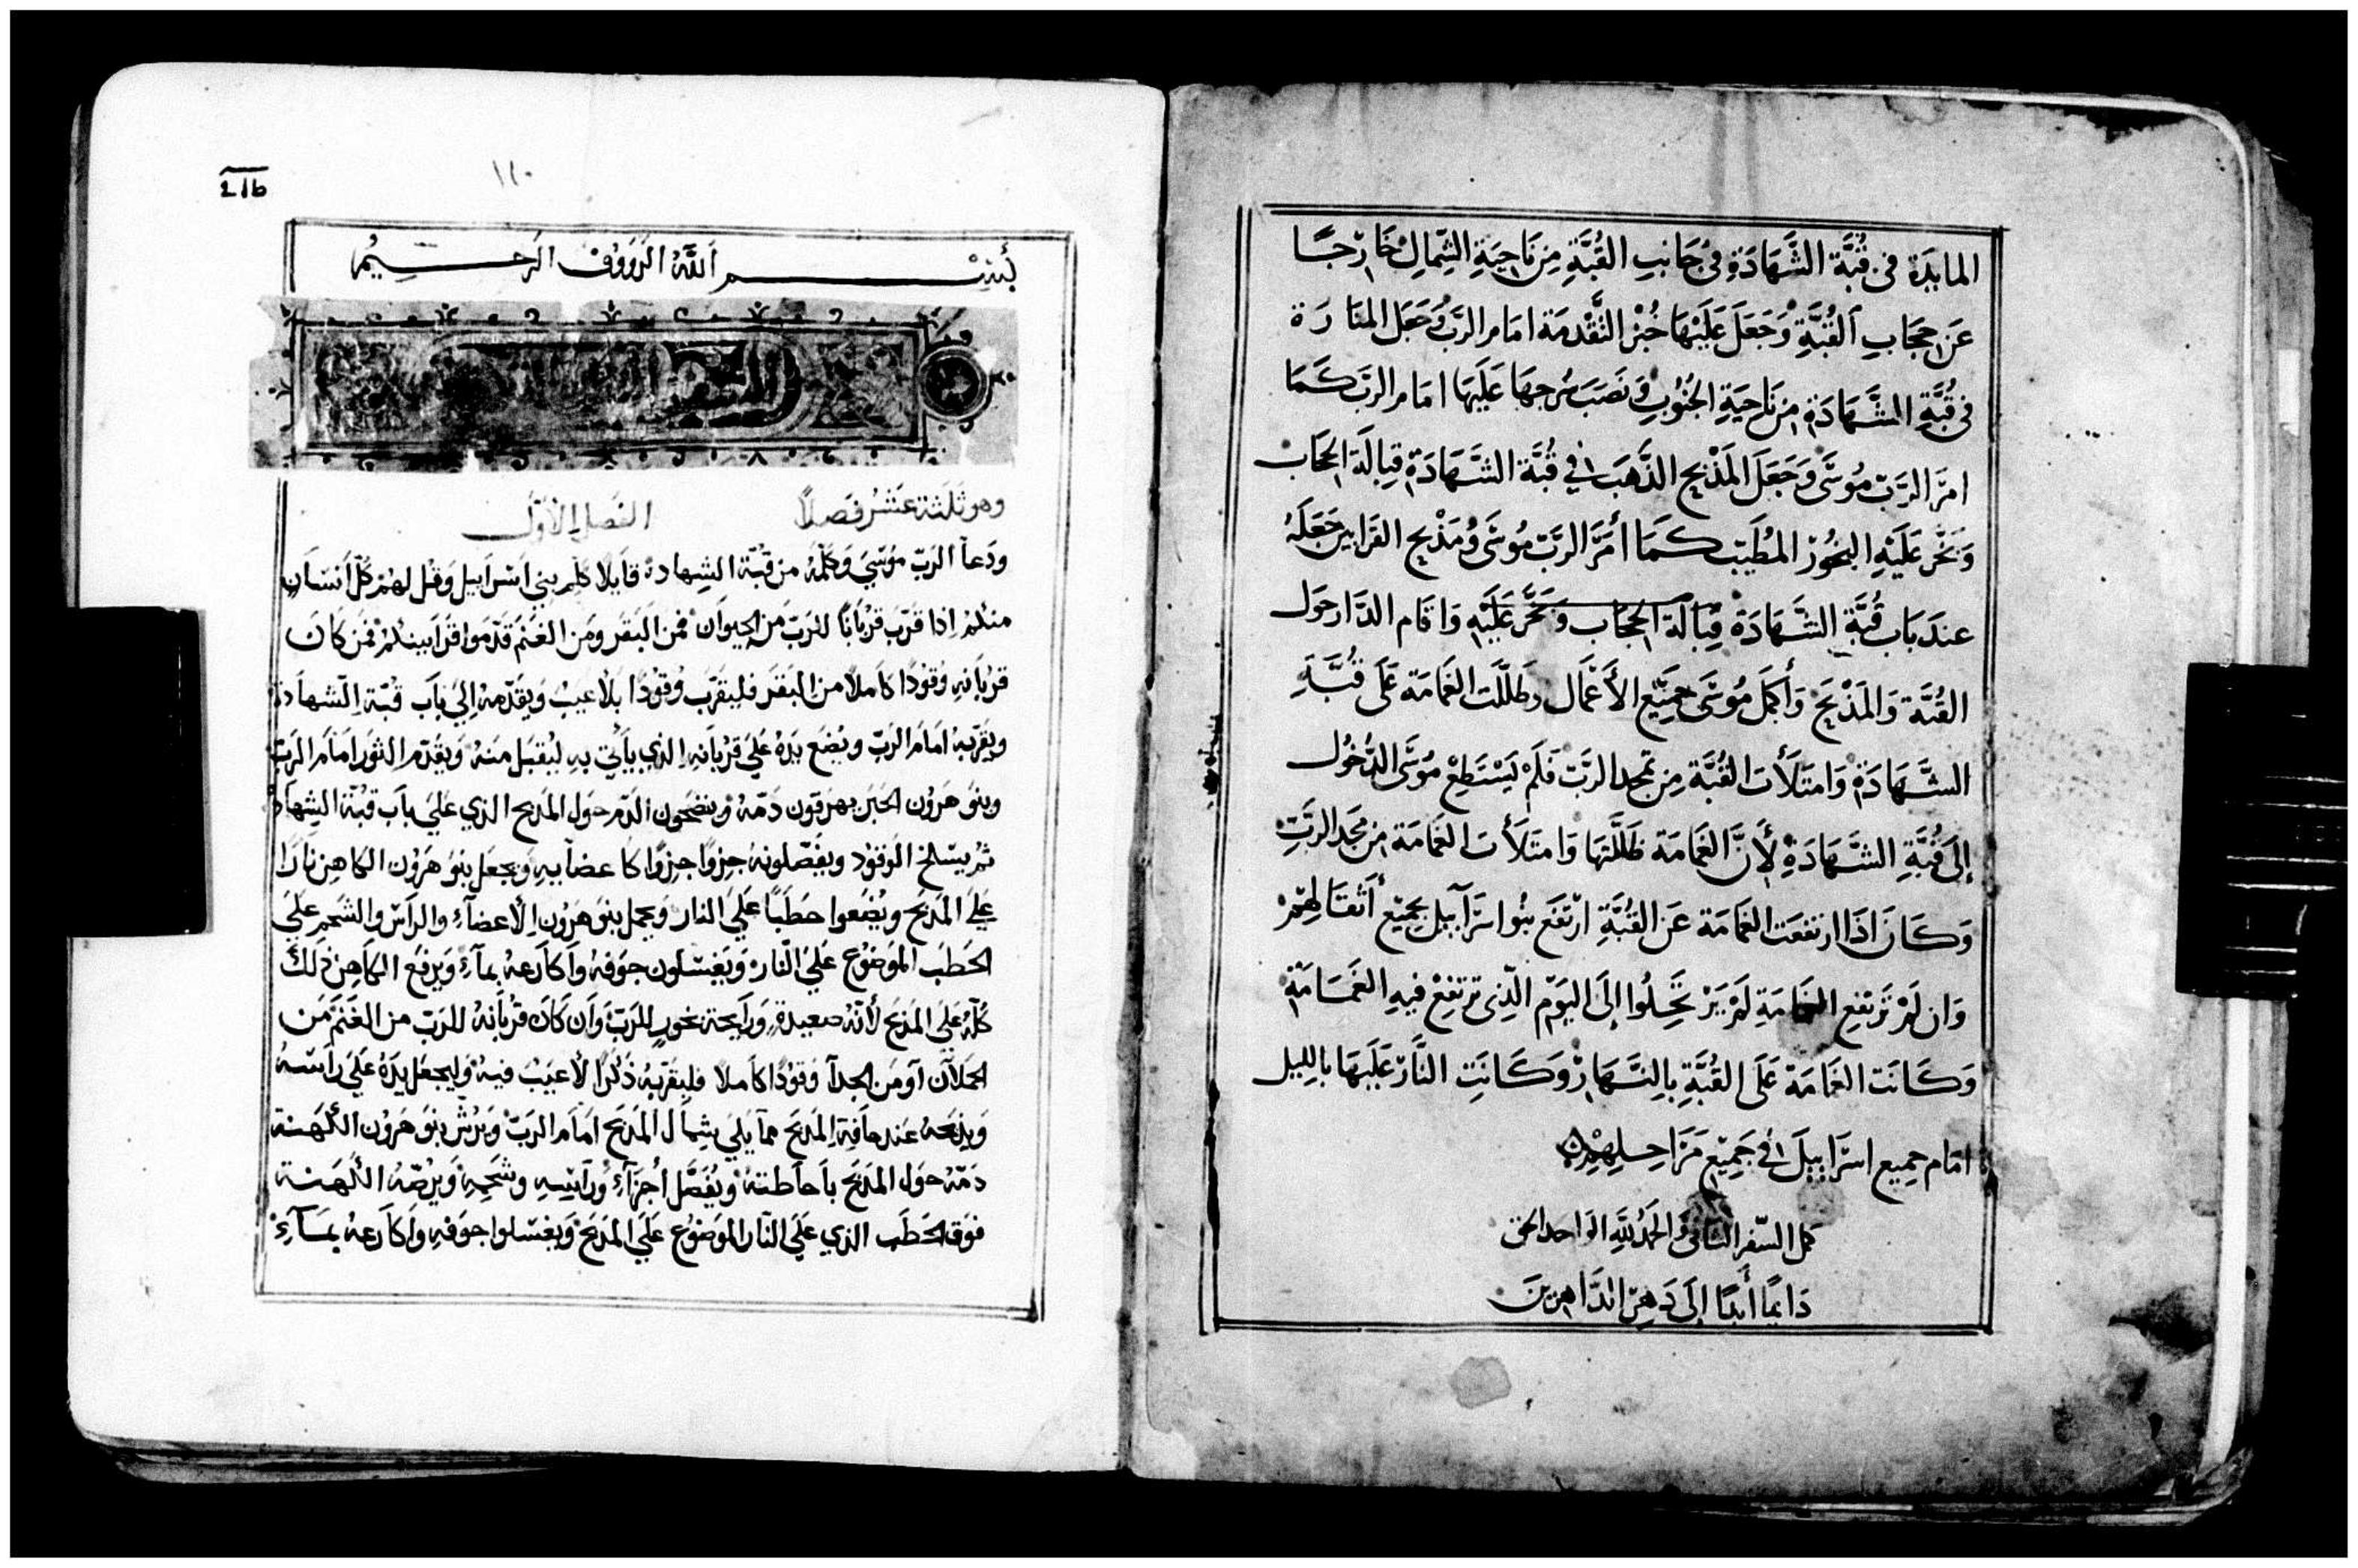 المايدة في قُبَّة الشَّهَادَةِ في جَانبِ القُبَّةِ مِن نَاحِيَةِ الشِّمالِ خَارِجًا
عَن حِجَابِ القُبَّةِ وَجَعَلَ عَلَيْهَا خُبْز التَّقْدِمَة امَام الرَّبِّ وَجَعَل المنَارَة
في قُبَّةِ الشَّهَادَةِ مِن نَاحِيَةِ الجُنُوبِ وَنَصَبَ سُرجهَا عَلَيهَا امَام الربّ كَمَا
امرَ الرَّبّ مُوسَى وَجَعَلَ المَذْبح الذَّهَب في قُبَّة الشَّهَادَة قِبَالَة الحجَاب
وَبَخَّر عَلَيْهِ البخُوز المُطَيّب كَمَا أمَرَ الرَّبّ مُوسَى وَمَذْبح القَرَابين جَعَلَهُ
عندَ بَاب قُبَّة الشَّهَادَة قِبَالَة الحِجَاب وَبَخَّر عَلَيْهِ وَاقَام الدَّار حَول
القُبَّة وَالمَذْبَح وَأكمَل مُوسَى جَمِيْع الأَعْمَال وظلَّلَت الغَمَامَة عَلَى قُبَّةِ
الشَّهَادَة وَامتَلَأَت القُبَّة مِن مَجد الرَّبّ فَلَمْ يَسْتَطِعْ مُوسَى الدُّخُول
إلَى قُبَّةِ الشَّهَادَةِ لأَنَّ الغَمَامَة ظَلَّلَتهَا وَامتَلَأَت الغَمَامَة مِن مَجد الرَّبِّ
وَكَان اذَا ارتفعَت الغَمَامَة عَن القُبَّةِ ارْتَفَع بنُوا اسرَآييل بجَمِيْع أَثْقَالِهِمْ
وَان لَمْ تَرتفِع الغَمَامَة لَمْ يَرْتَحِلُوا إلَى اليَوْم الَّذِى ترتفِعْ فِيهِ الغَمَامَة
وَكَانَت الغَمَامَة عَلَى القُبَّةِ بِالنَّهَارْ وَكَانَتِ النَّار عَلَيهَا بالليل
امَام جميع اسرَاييلَ في جَمِيْع مَرَاحِلِهِمْ
كمل السّفر الثاني وَالحَمْدُ للَّهِ الوَاحد الحق
دَايمًا أَبدًا إلَى دَهرِ الدَّاهِرِينَ
216
١١٠
بِسْمِ اَللَّهِ الرَّؤوُف الرَحِيمُ
السفر
وهو ثلثة عَشرُ فَصلاً الفصل الأوّل
ودَعاَ الرَبّ مؤسَي وَكلّمهُ من قُبّة الشهادة قايلا كلم بني اسرَاييل وَقل لهُمْ كلّ أنسَانٍ
منكم اِذا قرّب قربَانًا للرَبّ من الحيوَان فمن البَقر ومَن الغَنم قدّموا قرَابينكُمْ فمن كان
قربَانهِ وَقودًا كاملاً من البَقَر فليقرّب وَقودًا بلاعيبٍ وَيقدّمهُ اِلي بَاَب قُبّة الشهادة
ويقرّبهُ امَام الرَبّ ويضَع يدهُ عَلي قربَانهِ الذي يأتي بهِ ليُقبَل منهُ وَيقدّم الثور امَامَ الرَبّ
وبنو هَرَوُن الحَبر يهرقون دَمّهُ وَينضحون الدّم حَول المَذبح الذي عَلي بَاب قُبّة الشهادة
ثمّ يسلخ الوَقوُد ويفصّلونهُ جزؤا جزؤا كاعضآيهِ وَيجعَل بنو هَرَوُن الكاهن نارًا
عَلي المَذبَح وَيضَعوا حطَبًا عَلي النار وَيحمل بنو هَرَوُن الأعضآءِ والرأس والشحم عَلي
الحَطب الموضُوع عَلي النّار وَيَغسلون جوفهُ وَاكارَعهُ بمآءٍ وَيرفَع الكاهِن ذلك
كلّهُ عَلي المذبَح لأنّهُ صعيدة وَرَايحة بخورٍ للرَبّ وَان كَان قربَانهُ للرَبّ من الغَنَم من
الحملآن اَو من الجدآ وَقودًا كاملا فليقرّبهُ ذكرًا لاعيبَ فيهِ وَليجعَل يدَهُ عَلي رَاسهُ
وَيذبحهُ عَند حَافة المَذبَح ممَا يَلي شِمَال المَذبَح امَام الرَبّ وَيَرُشّ بنو هَرَوُن الكَهَنة
دَمّهُ حَول المذبَح باحَاطتهُ وَيُفصَّل أجزَآءُ وَرَاسِهِ وشَحمِهِ وَيرصّهُ الكَهَنة
فوَق الحَطَب الذي عَلَي النّار الموضُوع عَلَي المَذبَح وَيَغسلوا جوفهِ وَاكارَعهُ بمَآءٍ